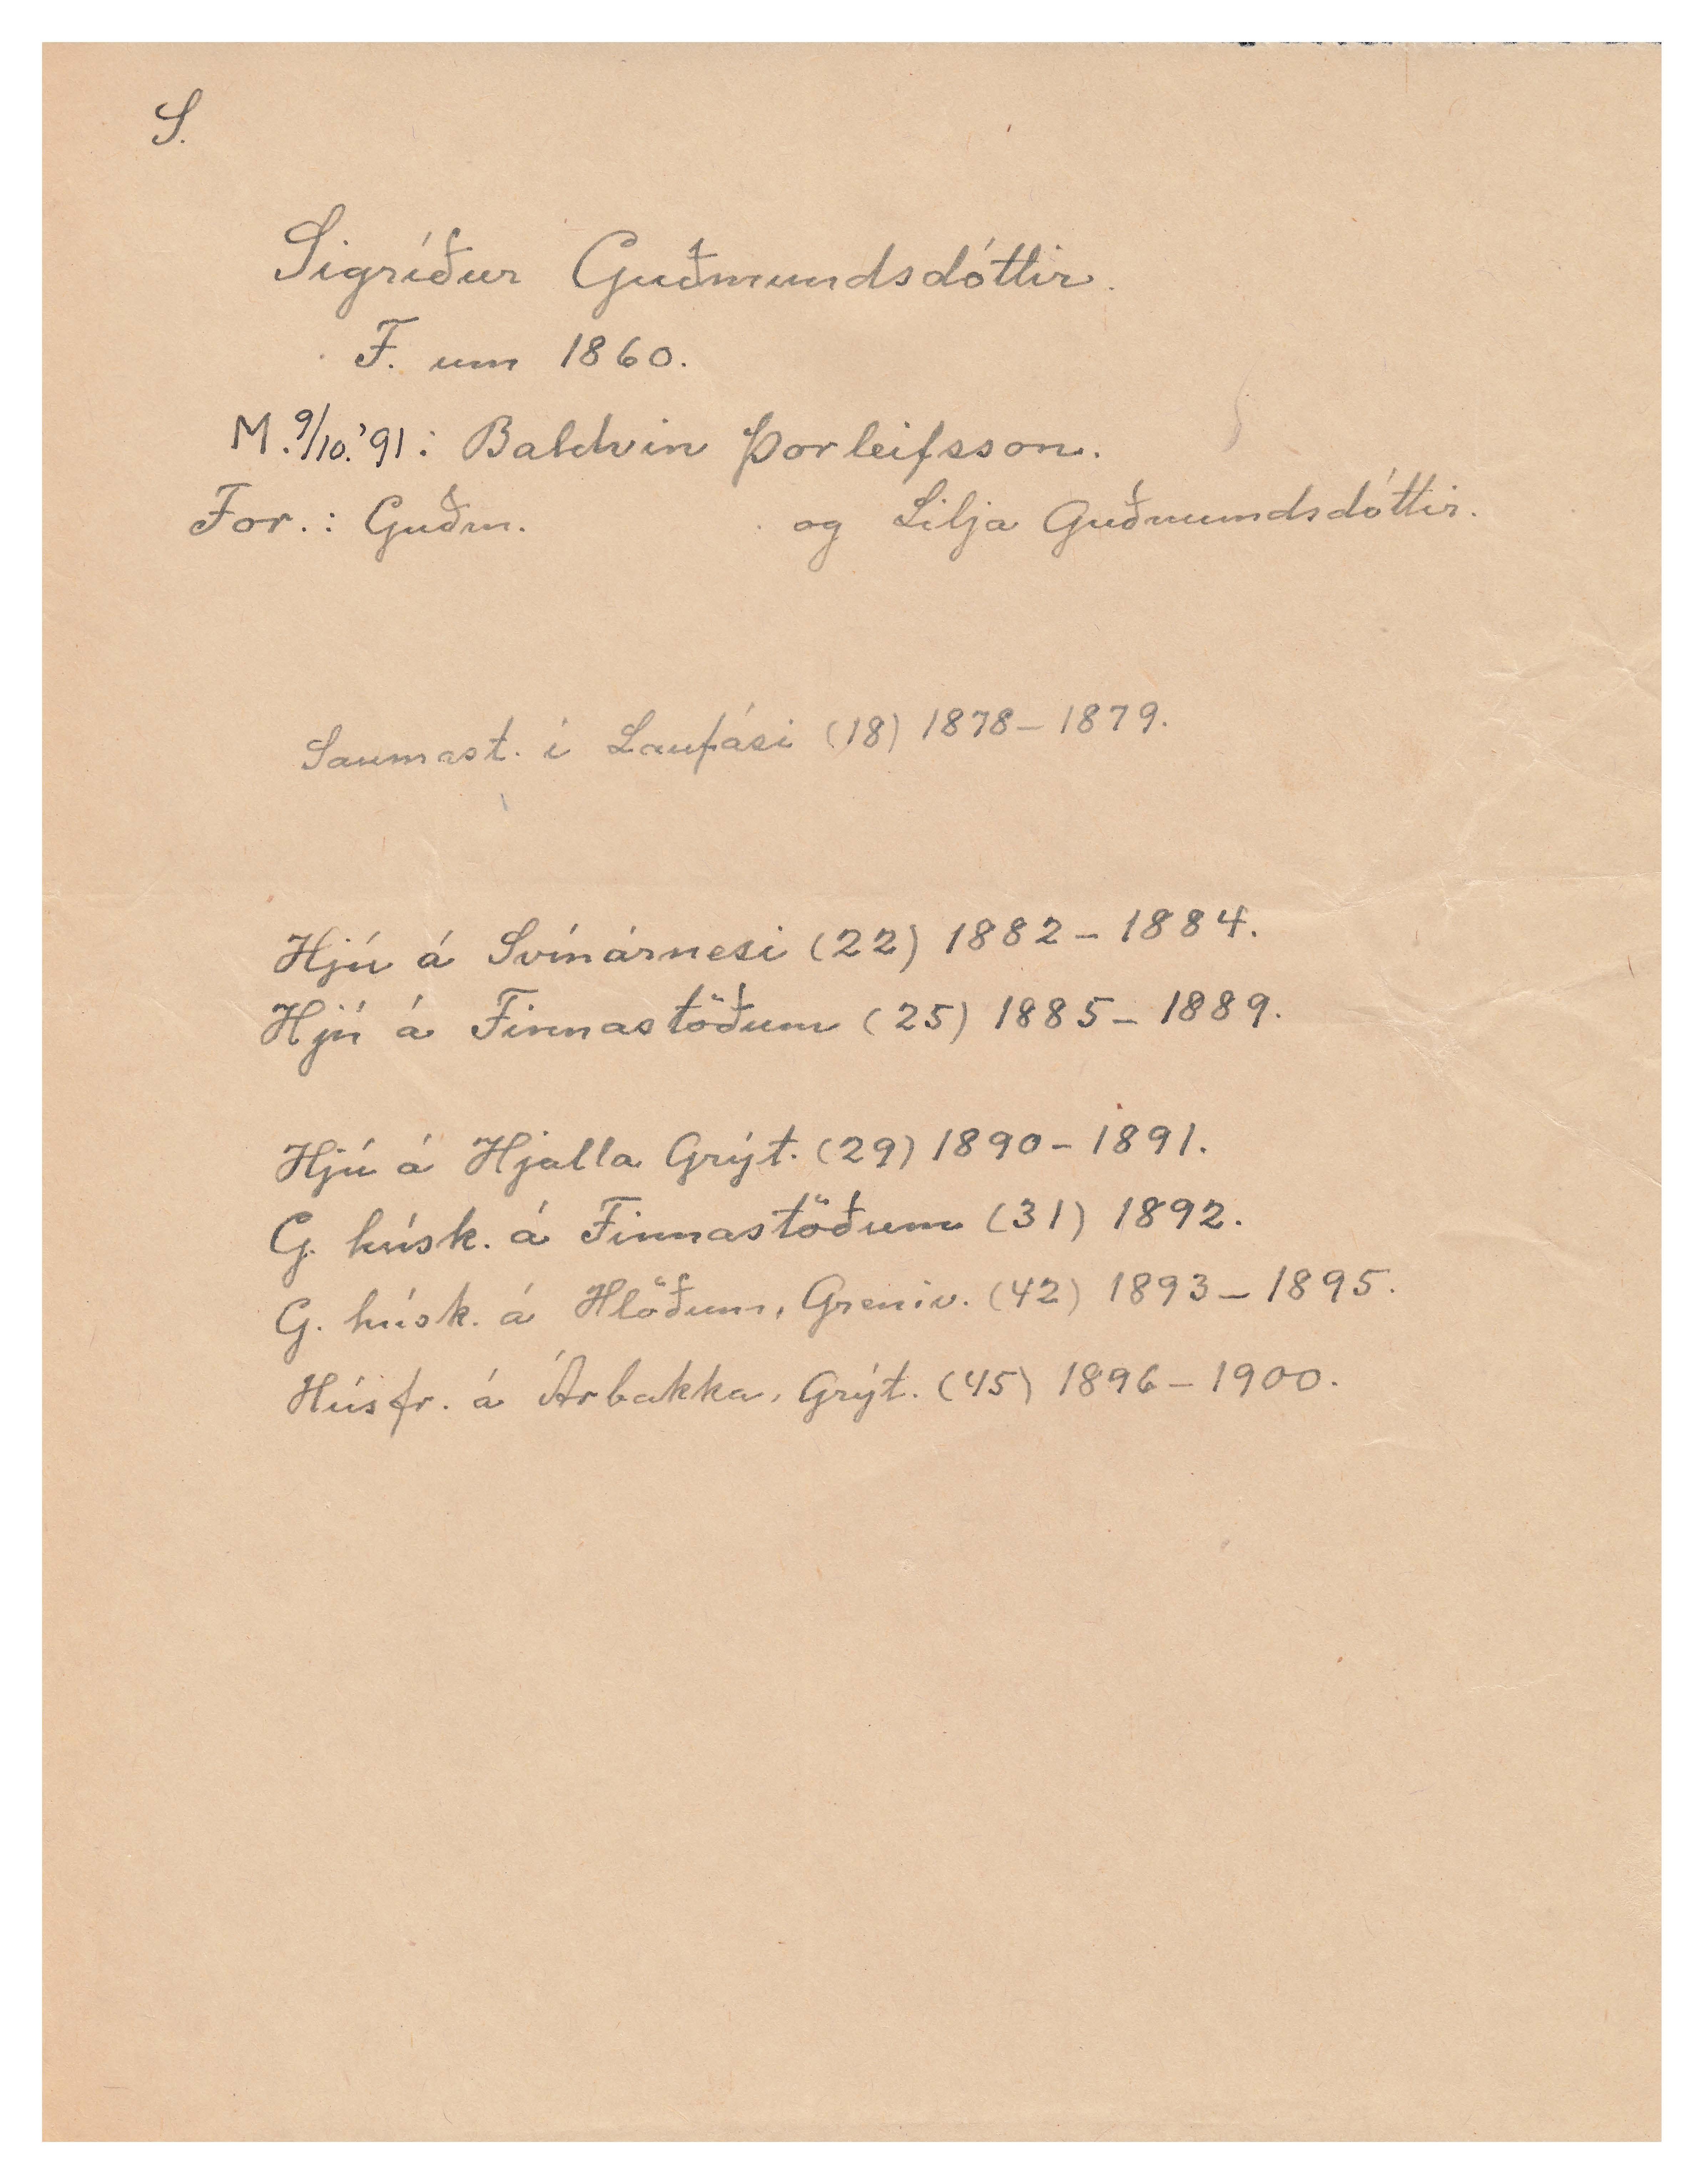 S.
Sigríður Guðmundsdóttir.
F. um 1860.
M. 9/10. '91: Baldvin Þorleifsson.
For.: Guðm. og Lilja Guðmundsdóttir.
Saumast. í Laufási (18) 1878–1879.
Hjú á Svínárnesi (22) 1882–1884.
Hjú á Finnastöðum (25) 1885–1889.
Hjú á Hjalla Grýt. (29) 1890–1891.
G. húsk. á Finnastöðum (31) 1892.
G. húsk. á Hlöðum, Greniv. (42) 1893–1895.
Húsfr. á Árbakka, Grýt. (45) 1896–1900.